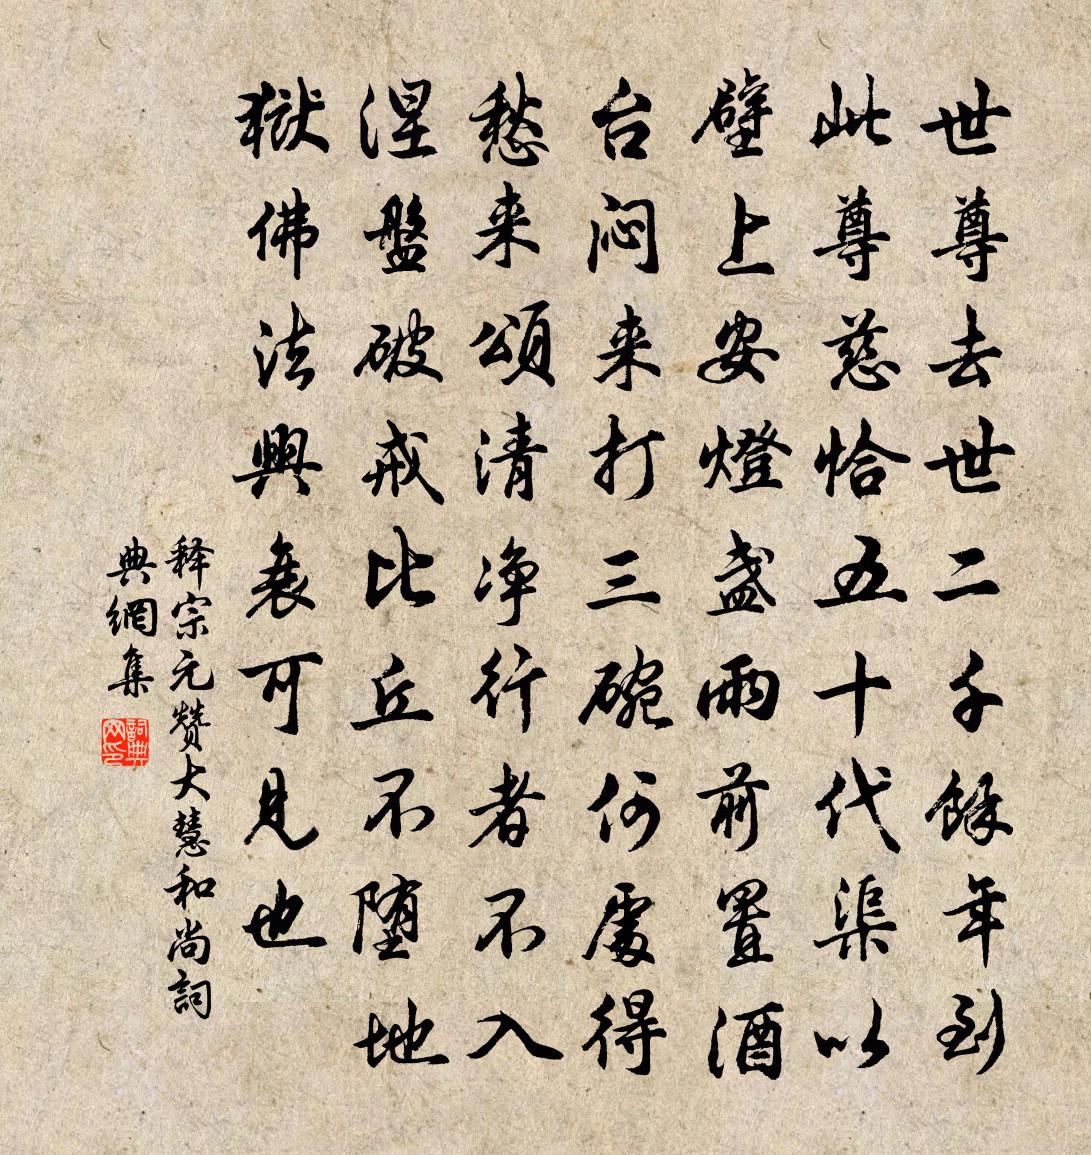 世尊去世二千餘年到
此尊慈恰五十代渠以
壁上安燈盏雨前置酒
台闷来打三碗何處得
愁来頌清净行者不入
涅盤破戒比丘不堕地
獄佛法興衰可見也
释宗元赞大慧和尚詞
典網集
詞典网印